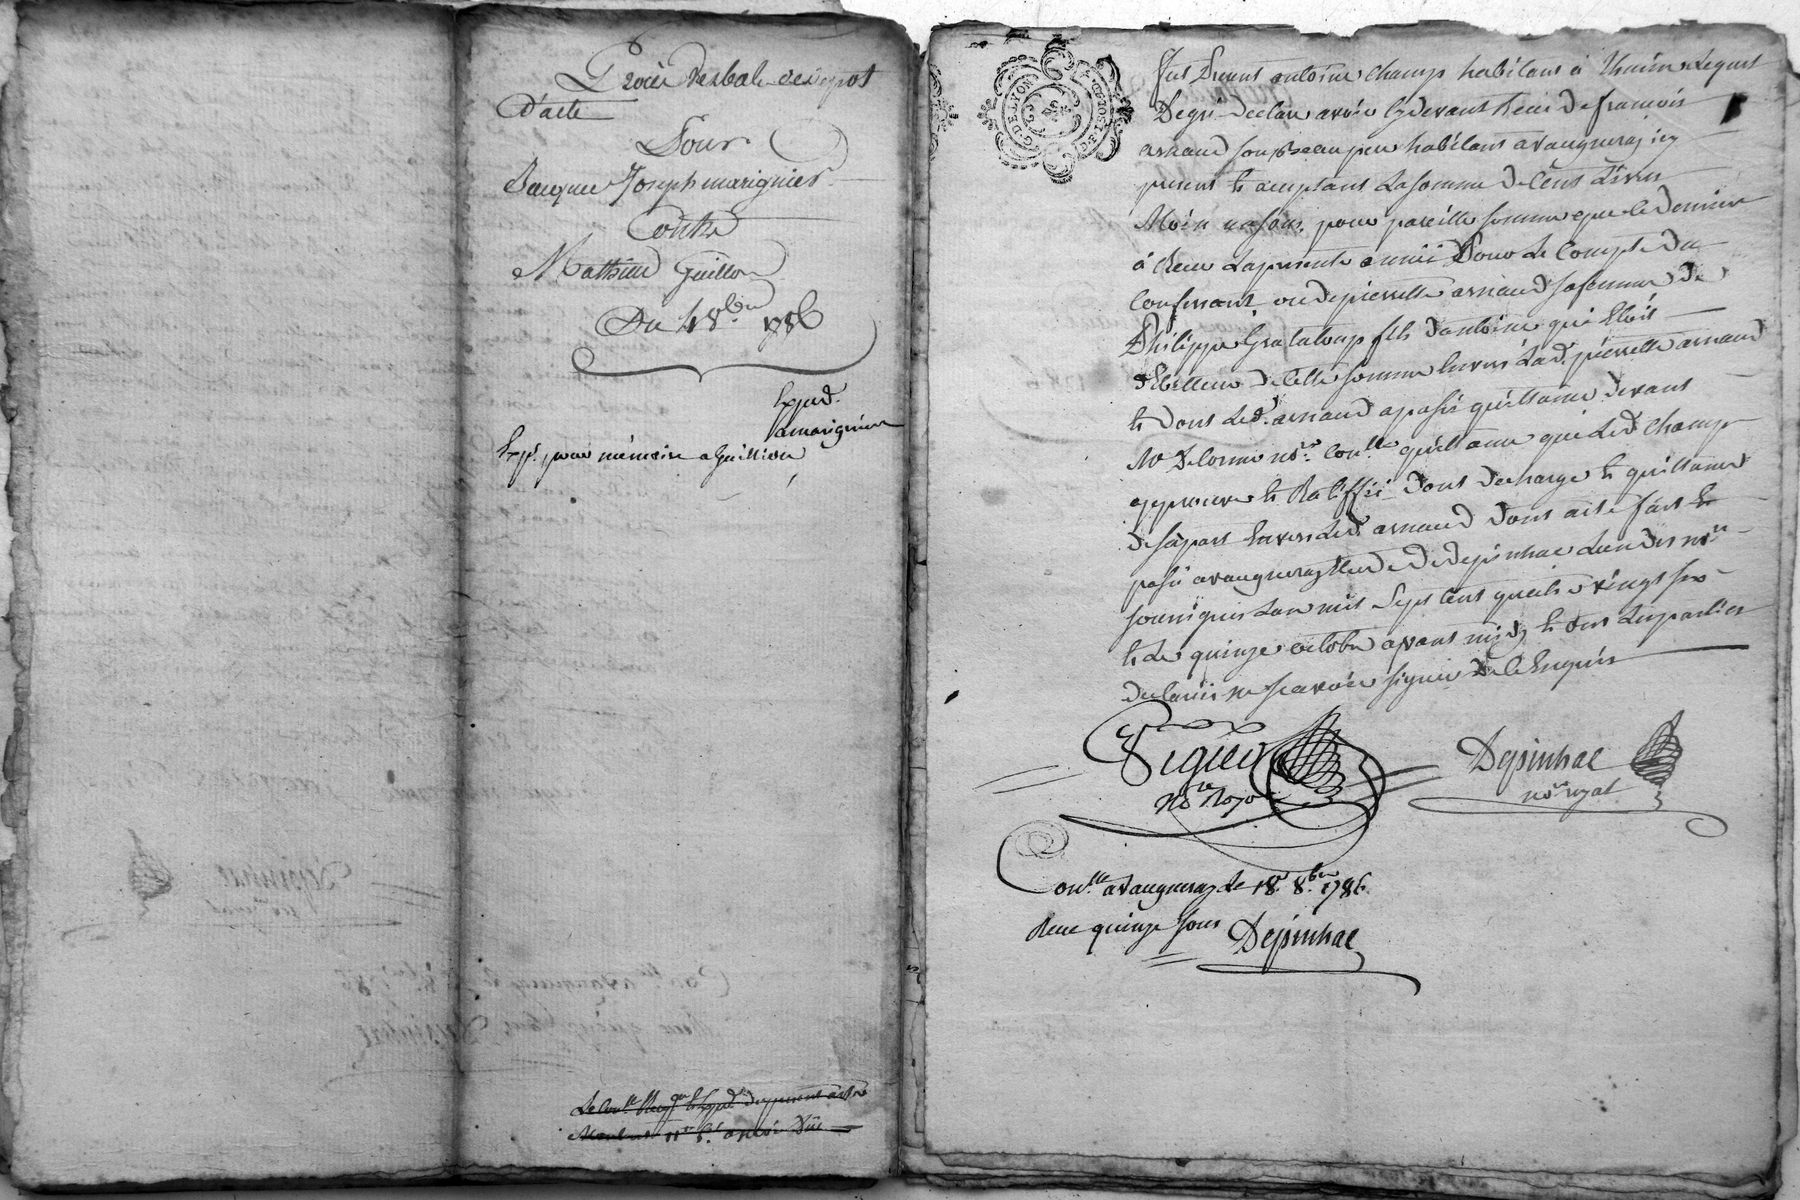 Procès verbal de depot
D'acte
Pour
Jacques Joseph marignier
Contre
Mathieu Guillon
Du 4 8bre 1786
Exped.
a marignier
Exp. pour mémoire a Guillion
G. DE LYON
Fut présent antoine champ habitant à Thurins lequel
De gré declare avoir cy devant Receu de francois
arnaud son Beau pere habitant a vaugneray icy
present et acceptant la somme de cent Livres
Moin un sous, pour pareille somme que le dernier
á Receu la presente année Pour Le Compte du
Confessant ou de pierrette arnaud sa femme de
Philippe Grataloup fils d'antoine qui Etoit
debitteur de cette somme Envers Lad. pierrette arnaud
et dont Led. arnaud a passé quittance devant
Me Delorme nore. quittance que Led. Champ
approuve et Ratiffie dont decharge et quittance
de sa part Envers Led. arnaud dont acte fait et
passé a vaugneray Etude de depinhac L'un des nores
soussignés L'an mil Sept Cent quatre vingt six
et Le quinze octobre avant midy et ont Les parties
declarés ne scavoir signer de ce Enquis
Vigier
nore Royal
Depinhac
nore royal
Conlle a Vaugneray le 18 8bre 1786.
Receu quinze Sous Depinhac